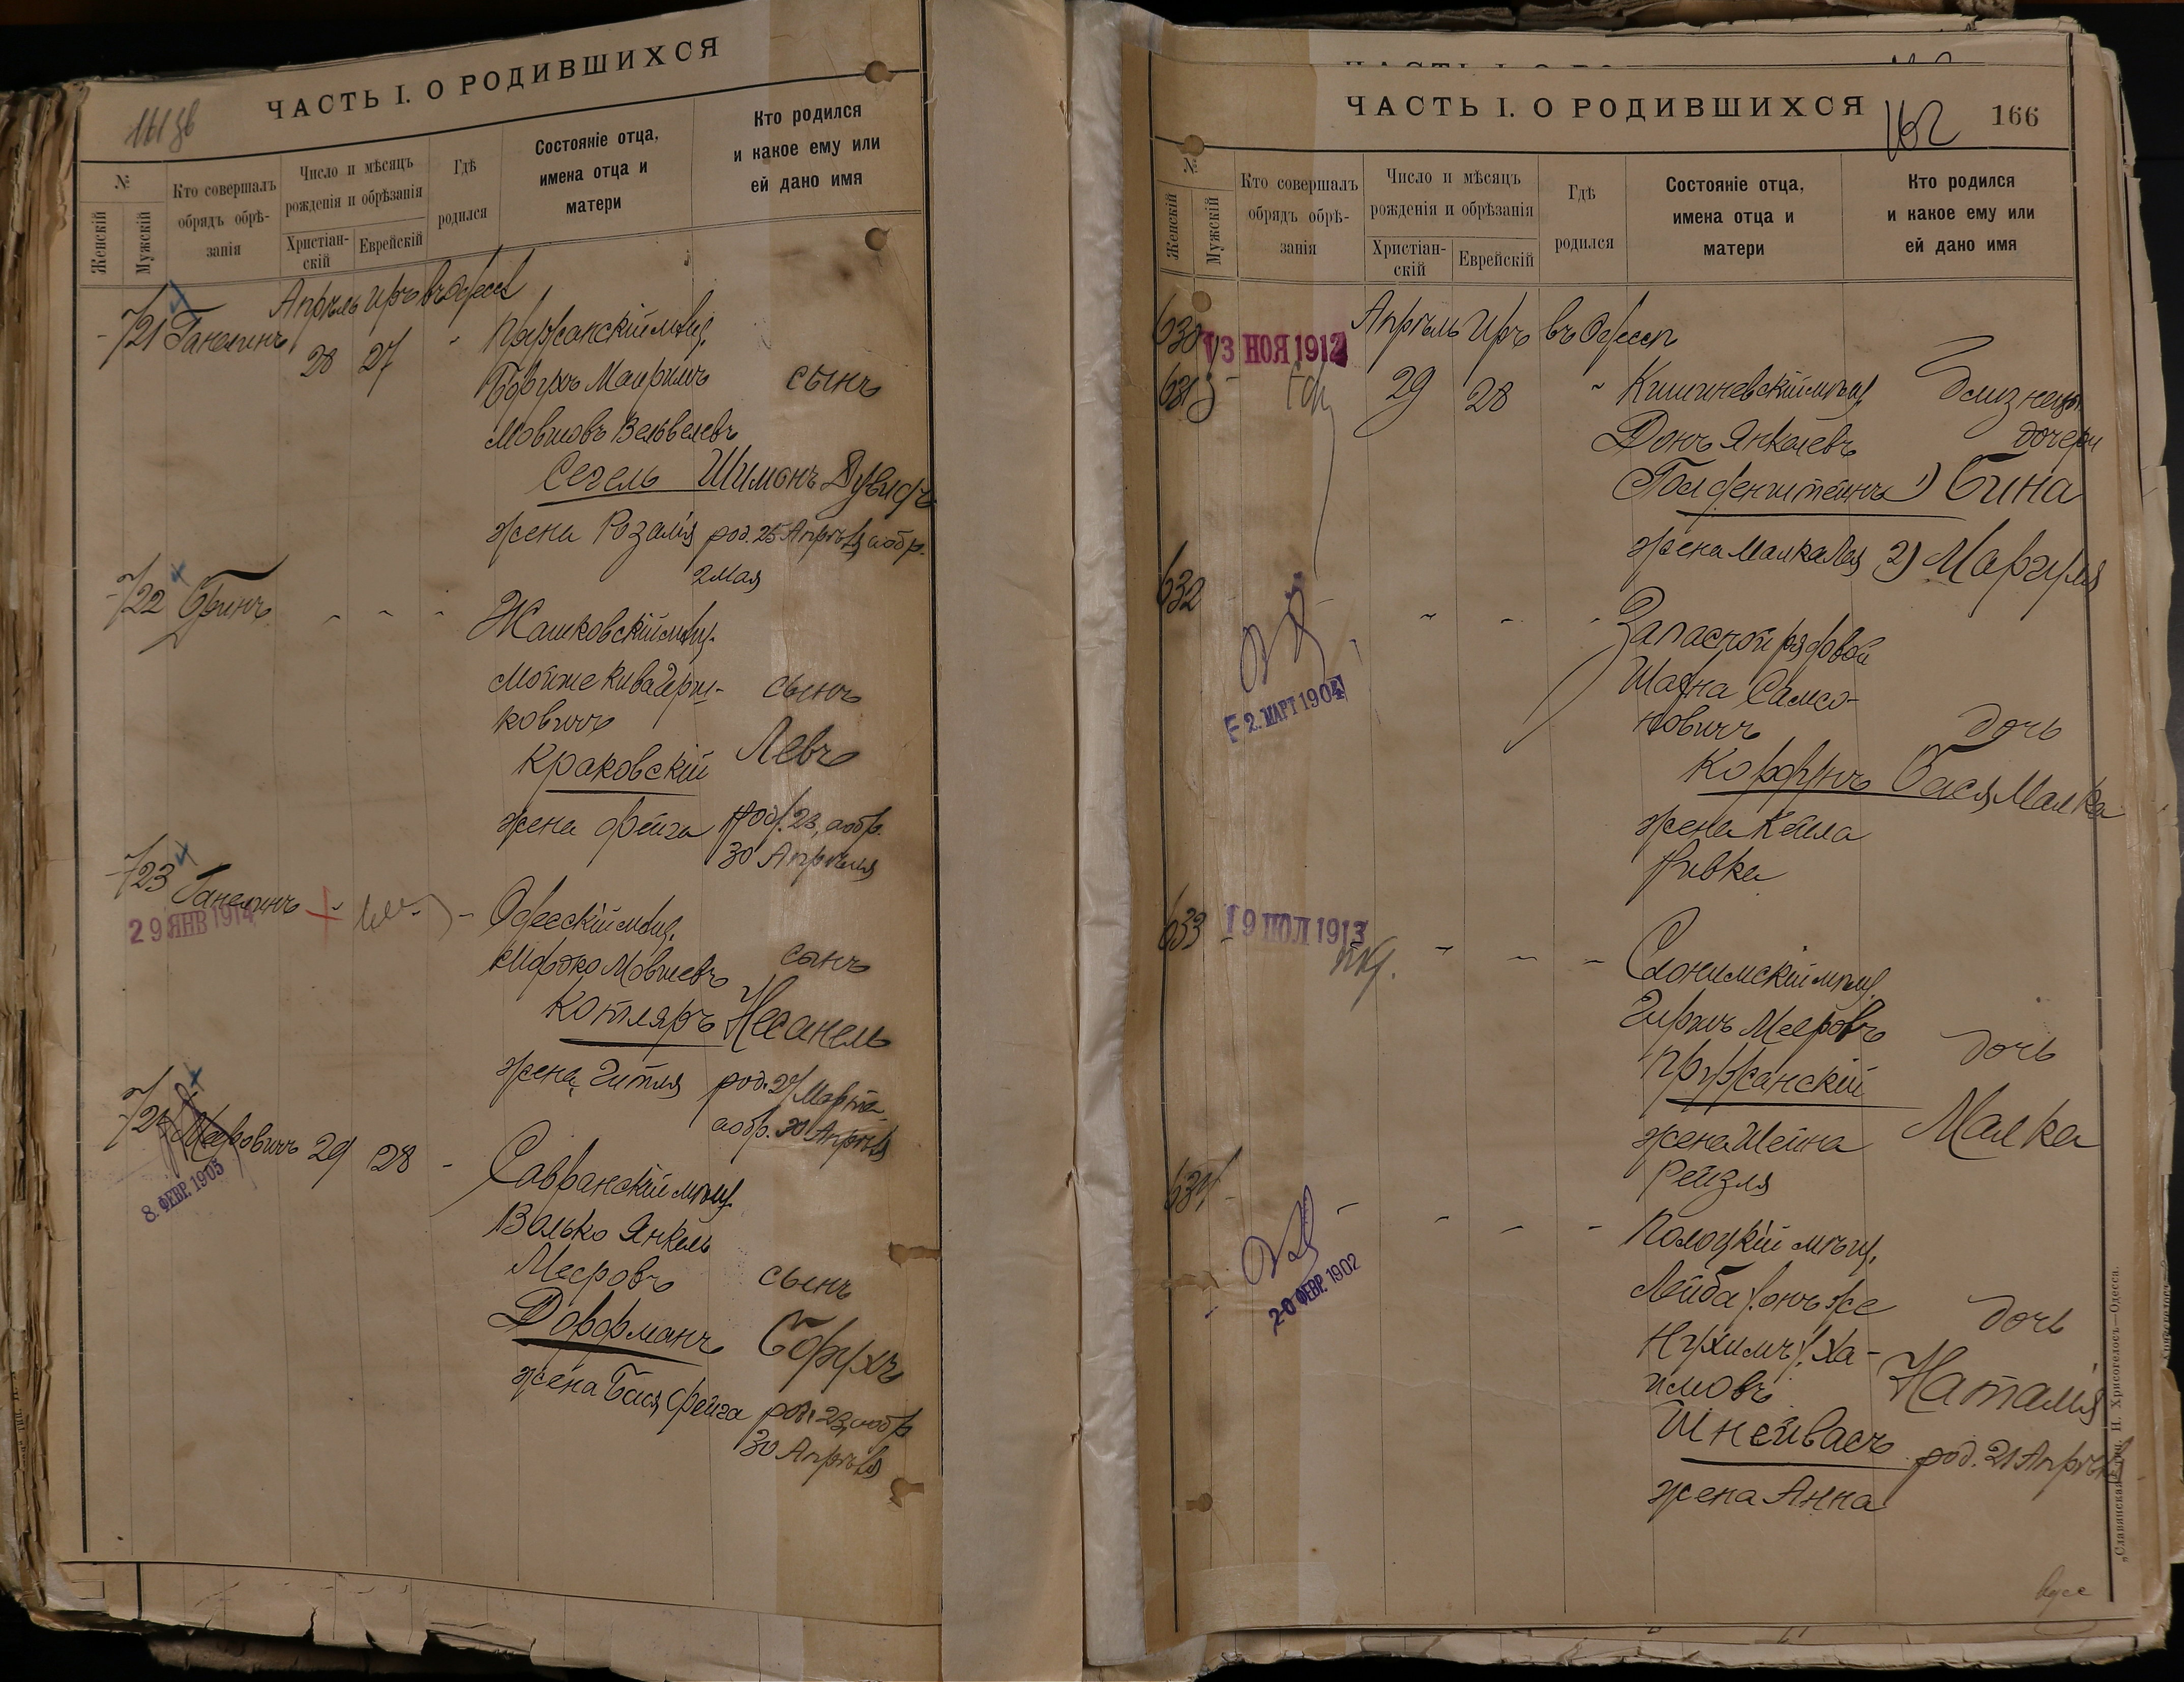 ЧАСТЬ I. О РОДИВШИХСЯ
№
Женскій
Мужскій
Кто совершалъ обрядъ обрѣ-
занія
Число и мѣсяцъ
рожденія и обрѣзанія
Христіан-
скій
Еврейскій
Гдѣ
родился
Состояніе отца,
имена отца и
матери
Кто родился
и какое ему или
ей дано имя
Апрѣль Иръ въ Одессѣ
721 Ганелинъ 28 27 Пружанскій мѣщ.
Борухъ Маеркъ сынъ
Мовшовъ Вельвелевъ
Сегель Шимонъ Дувидъ
жена Розалія род. 25 Апрѣля, а обр.
2 Мая
722 Бринъ Жашковскій мѣщ.
Мойше Кива Герш-
ковичъ сынъ
Краковскій Левъ
жена Фейга род. 23, а обр.
30 Апрѣля
723 Ганелинъ Одесскій мѣщ.
29 ЯНВ 1914
Мордко Мовшевъ сынъ
Котляръ Несанель
жена Гитля род. 27 Марта
а обр. 30 Апрѣля
724 Меровичъ 29 28 Савранскій мѣщ.
8. ФЕВР. 1905
Волько Янкель
Мееровъ сынъ
Дорфманъ Борухъ
жена Бася Фейга род. 23, а обр.
30 Апрѣля
ЧАСТЬ I. О РОДИВШИХСЯ
162
166
№
Женскій
Мужскій
Кто совершалъ
обрядъ обрѣ-
занія
Число и мѣсяцъ
рожденія и обрѣзанія
Христіан-
скій
Еврейскій
Гдѣ
родился
Состояніе отца,
имена отца и
матери
Кто родился
и какое ему или
ей дано имя
630 Апрѣль Иръ въ Одессѣ
13 НОЯ 1912
631 29 28 Кишиневскій мѣщ. близнецы
Донъ Янкелевъ дочери
Голденштейнъ 1) Бина
жена Малка Лея 2) Маргуля
632 Запасной рядовой
2. МАРТ 1904
Шахна Самсо-
новичъ дочь
Коффунъ Бася Малка
жена Кейла
Ривка
633 19 ІЮЛ 1913
Слонимскій мѣщ.
Гиршъ Мееровъ дочь
Пружанскій
жена Шейна Малка
Рейзля
634 Полоцкій мѣщ.
20 ФЕВР. 1902
Лейба (онъ же
Нухимъ) Ха-
имовъ дочь
Наталія
Шнейвасъ род. 21 Апрѣля
жена Анна
„Славянская“ тип. Н. Хрисогелосъ—Одесса.